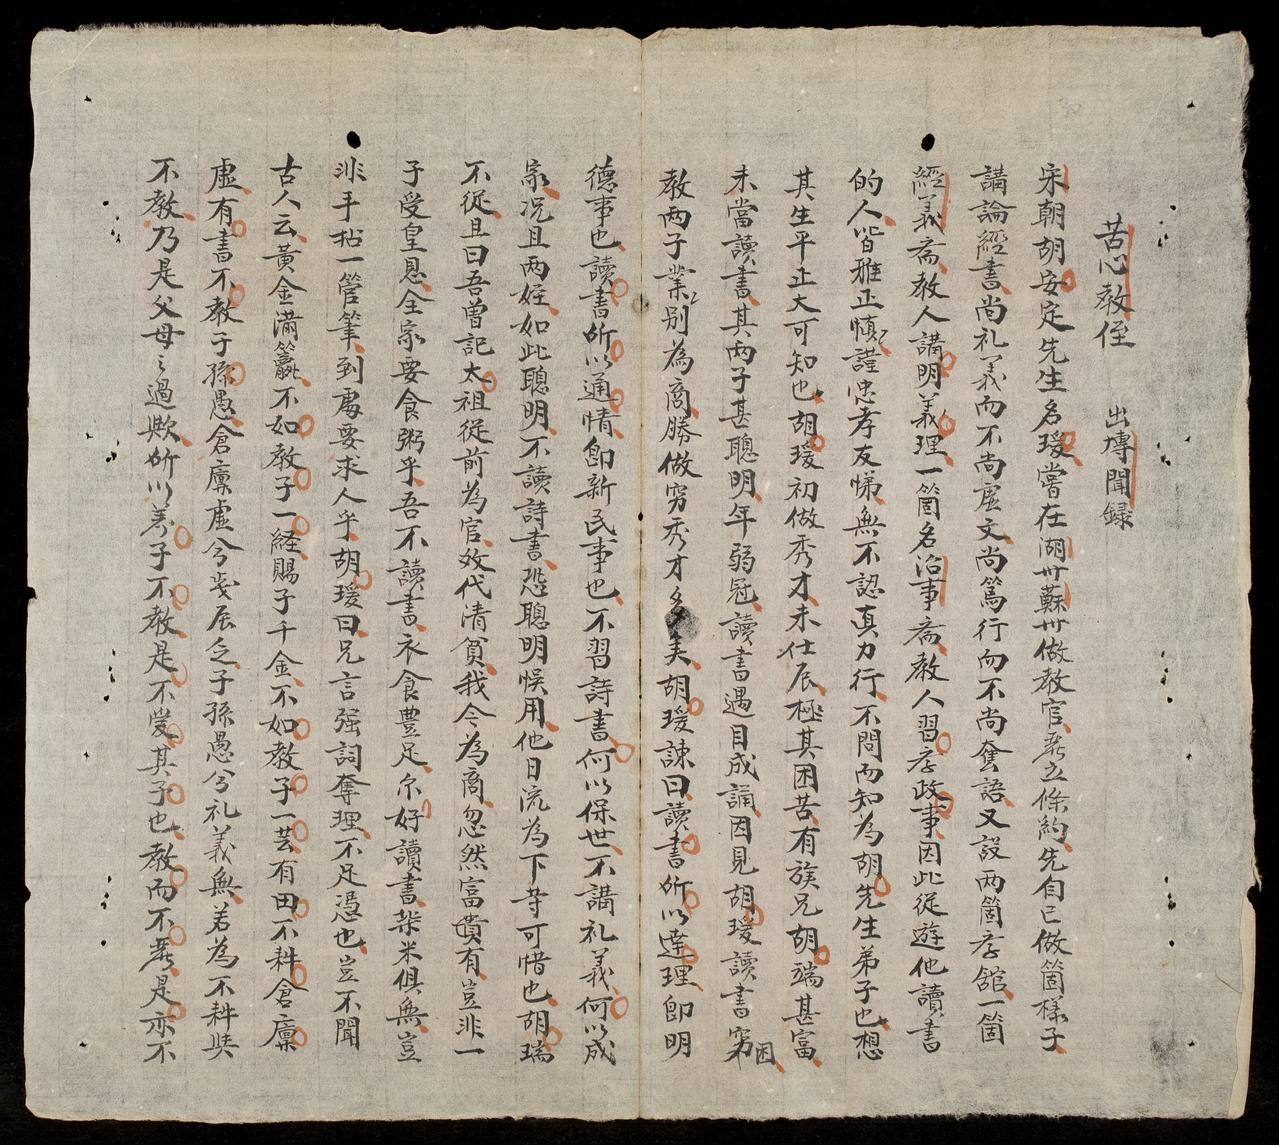 苦心教侄 出塼聞録
宋朝胡安定先生名瑗嘗在湖卅蘇卅做教官考立條約先自己做箇樣子
講論經書尚礼義而不尚虛文尚篤行而不尚奪語又設兩箇斈舘一箇
經義斎教人講明義理一箇名治事斎教人習斈政事因此從遊他讀書
的人皆雅正慎謹忠孝友悌無不認真力行不問而知為胡先生弟子也想
其生平正大可知也胡瑗初做秀才未仕辰極其困苦有族兄胡端甚富
未當讀書其兩子甚聰明年弱冠讀書過目成誦因見胡瑗讀書窮困
教兩子業別為商勝做穷秀才多矣胡瑗諫曰讀書所以達理即明
德事也讀書所以通情即新民事也不習詩書何以保世不講礼義何以成
家况且两姪如此聰明不讀詩書恐聰明悞用他日流為下等可惜也胡瑞
不從且曰吾曾記太祖従前為官奕代清貧我今為商忽然富貴有豈非一
子受皇恩全家要食粥乎吾不讀書衣食豊足尔好讀書柴米俱無豈
非手拈一管筆到處要求人乎胡瑗曰兄言强詞奪理不足憑也豈不聞
古人云黃金滿籯不如教子一経賜子千金不如教子一芸有田不耕倉廪
虛有書不教子孫愚倉廪虛兮歲辰乏子孫愚兮礼義無若為不耕與
不教乃是父母之過欺所以养子不教是不爱其子也教而不嚴是亦不